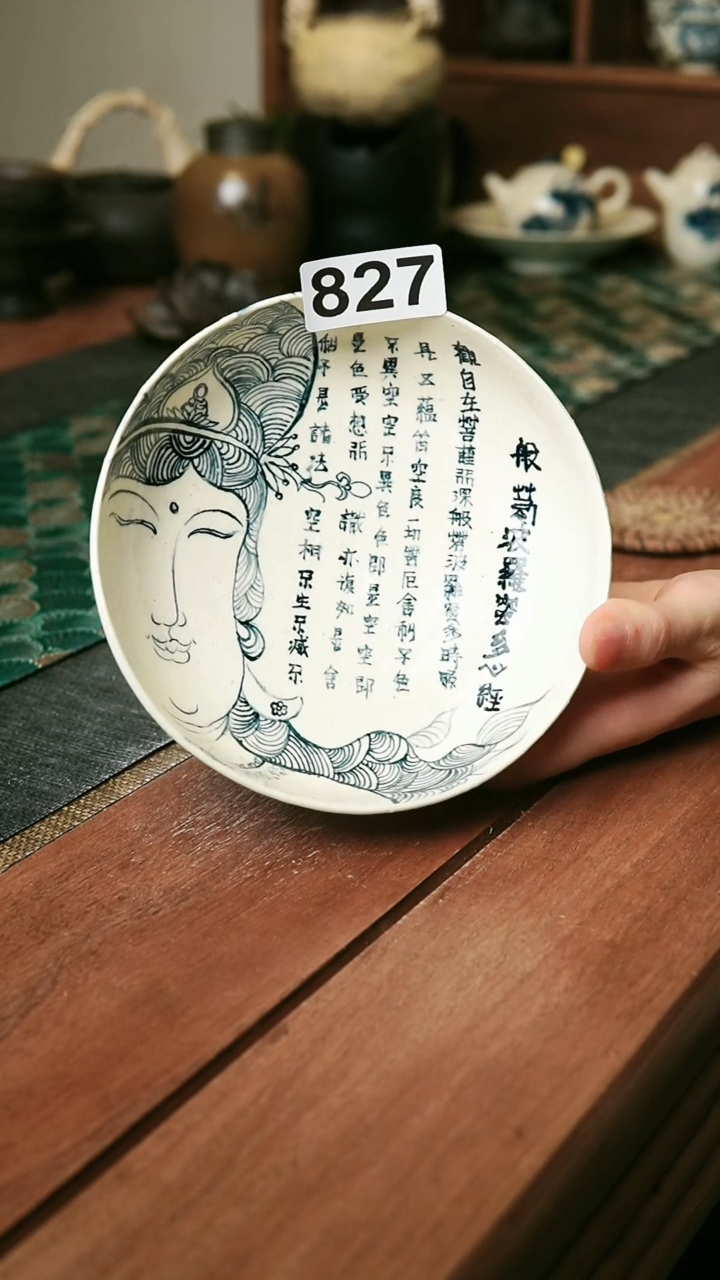 827
般若波羅蜜多心經
觀自在菩薩行深般若波羅蜜多時照
見五蘊皆空度一切苦厄舍利子色
不異空空不異色色即是空空即
是色受想行識亦復如是舍
利子是諸法空相不生不滅不